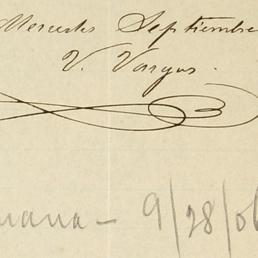 Mercedes Septiembre
V. Vargas.
mana – 9/28/06